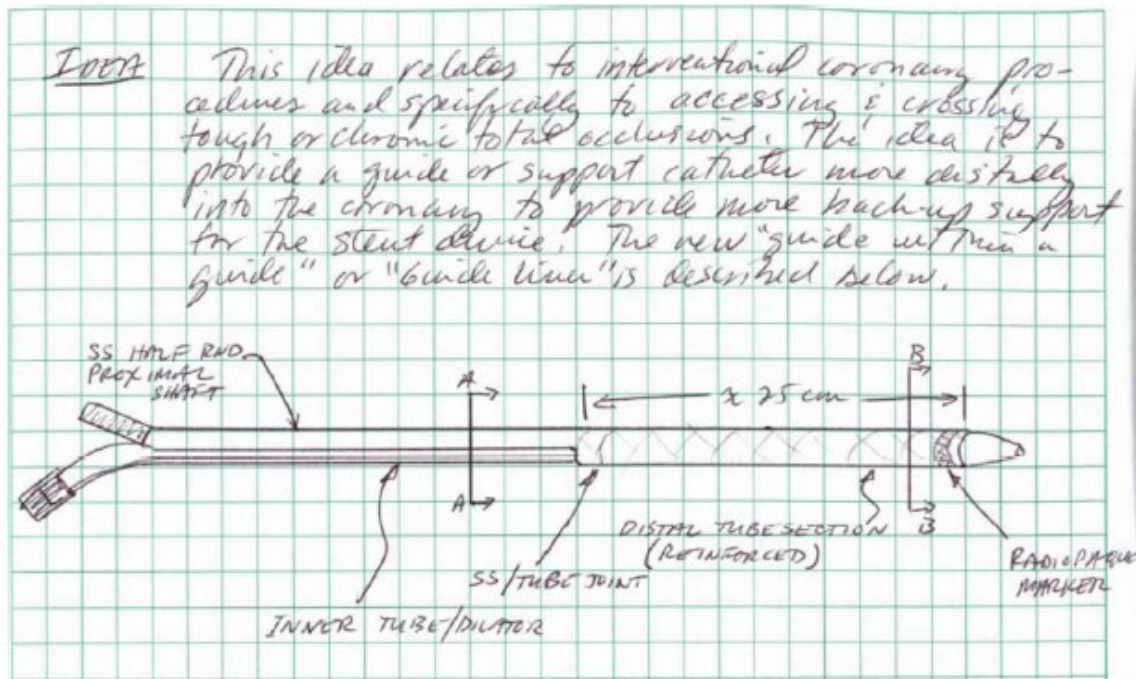 IDEA This idea relates to interventional coronary pro-
cedures and specifically to accessing & crossing
tough or chronic total occlusions. The idea is to
provide a guide or support catheter more distally
into the coronary to provide more back-up support
for the stent device. The new "guide within a
guide" or "Guide liner" is described below.
SS HALF RND
PROXIMAL
SHAFT
A
B
x 25 cm
A
B
DISTAL TUBE SECTION
(REINFORCED)
SS/TUBE JOINT
RADIOPAQUE
MARKER
INNER TUBE/DILATOR